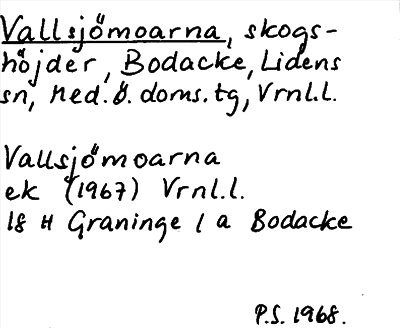 Vallsjömoarna, skogs-
höjder, Bodacke, Lidens
sn, Med.ö.doms.tg, Vrnl.l.
Vallsjömoarna
ek (1967) Vrnl.l.
18 H Graninge 1 a Bodacke
P.S. 1968.